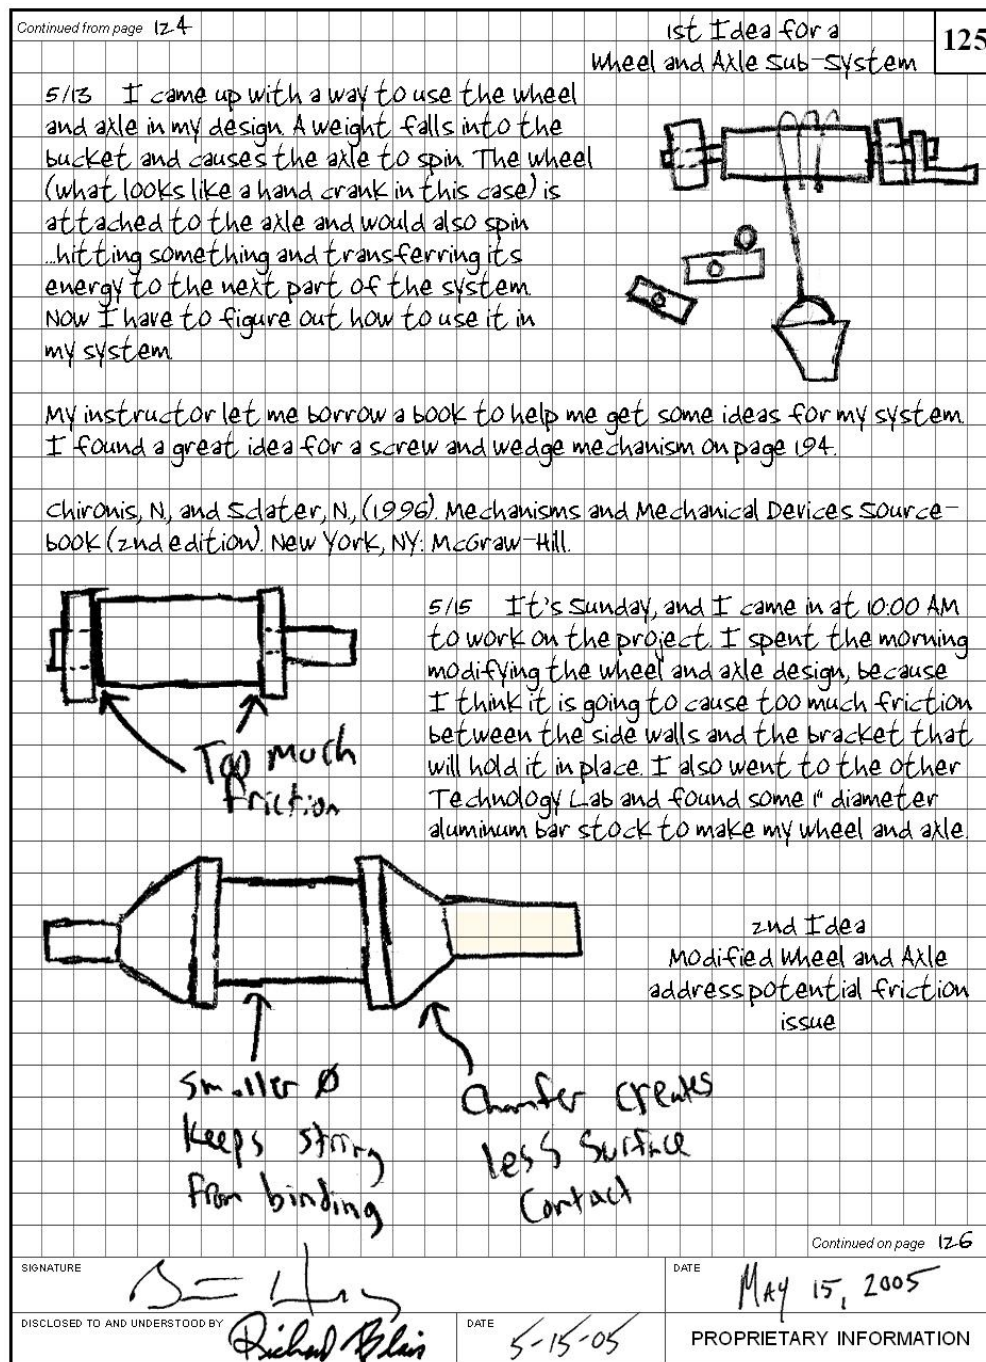 Continued from page 124
1st Idea for a
Wheel and Axle Sub-System
125
5/13 I came up with a way to use the wheel
and axle in my design. A weight falls into the
bucket and causes the axle to spin. The wheel
(what looks like a hand crank in this case) is
attached to the axle and would also spin
...hitting something and transferring its
energy to the next part of the system.
Now I have to figure out how to use it in
my system.
My instructor let me borrow a book to help me get some ideas for my system.
I found a great idea for a screw and wedge mechanism on page 194.
Chironis, N., and Sclater, N., (1996). Mechanisms and Mechanical Devices Source-
book (2nd edition). New York, NY: McGraw-Hill.
5/15 It's Sunday, and I came in at 10:00 AM
to work on the project. I spent the morning
modifying the wheel and axle design, because
I think it is going to cause too much friction
between the side walls and the bracket that
will hold it in place. I also went to the other
Technology Lab and found some 1" diameter
aluminum bar stock to make my wheel and axle.
Too Much
friction
2nd Idea
Modified Wheel and Axle
address potential friction
issue
Smaller Ø
Keeps string
from binding
Chamfer creates
less Surface
Contact
Continued on page 126
SIGNATURE
DATE
May 15, 2005
DISCLOSED TO AND UNDERSTOOD BY
Richard Blais
DATE
5-15-05
PROPRIETARY INFORMATION